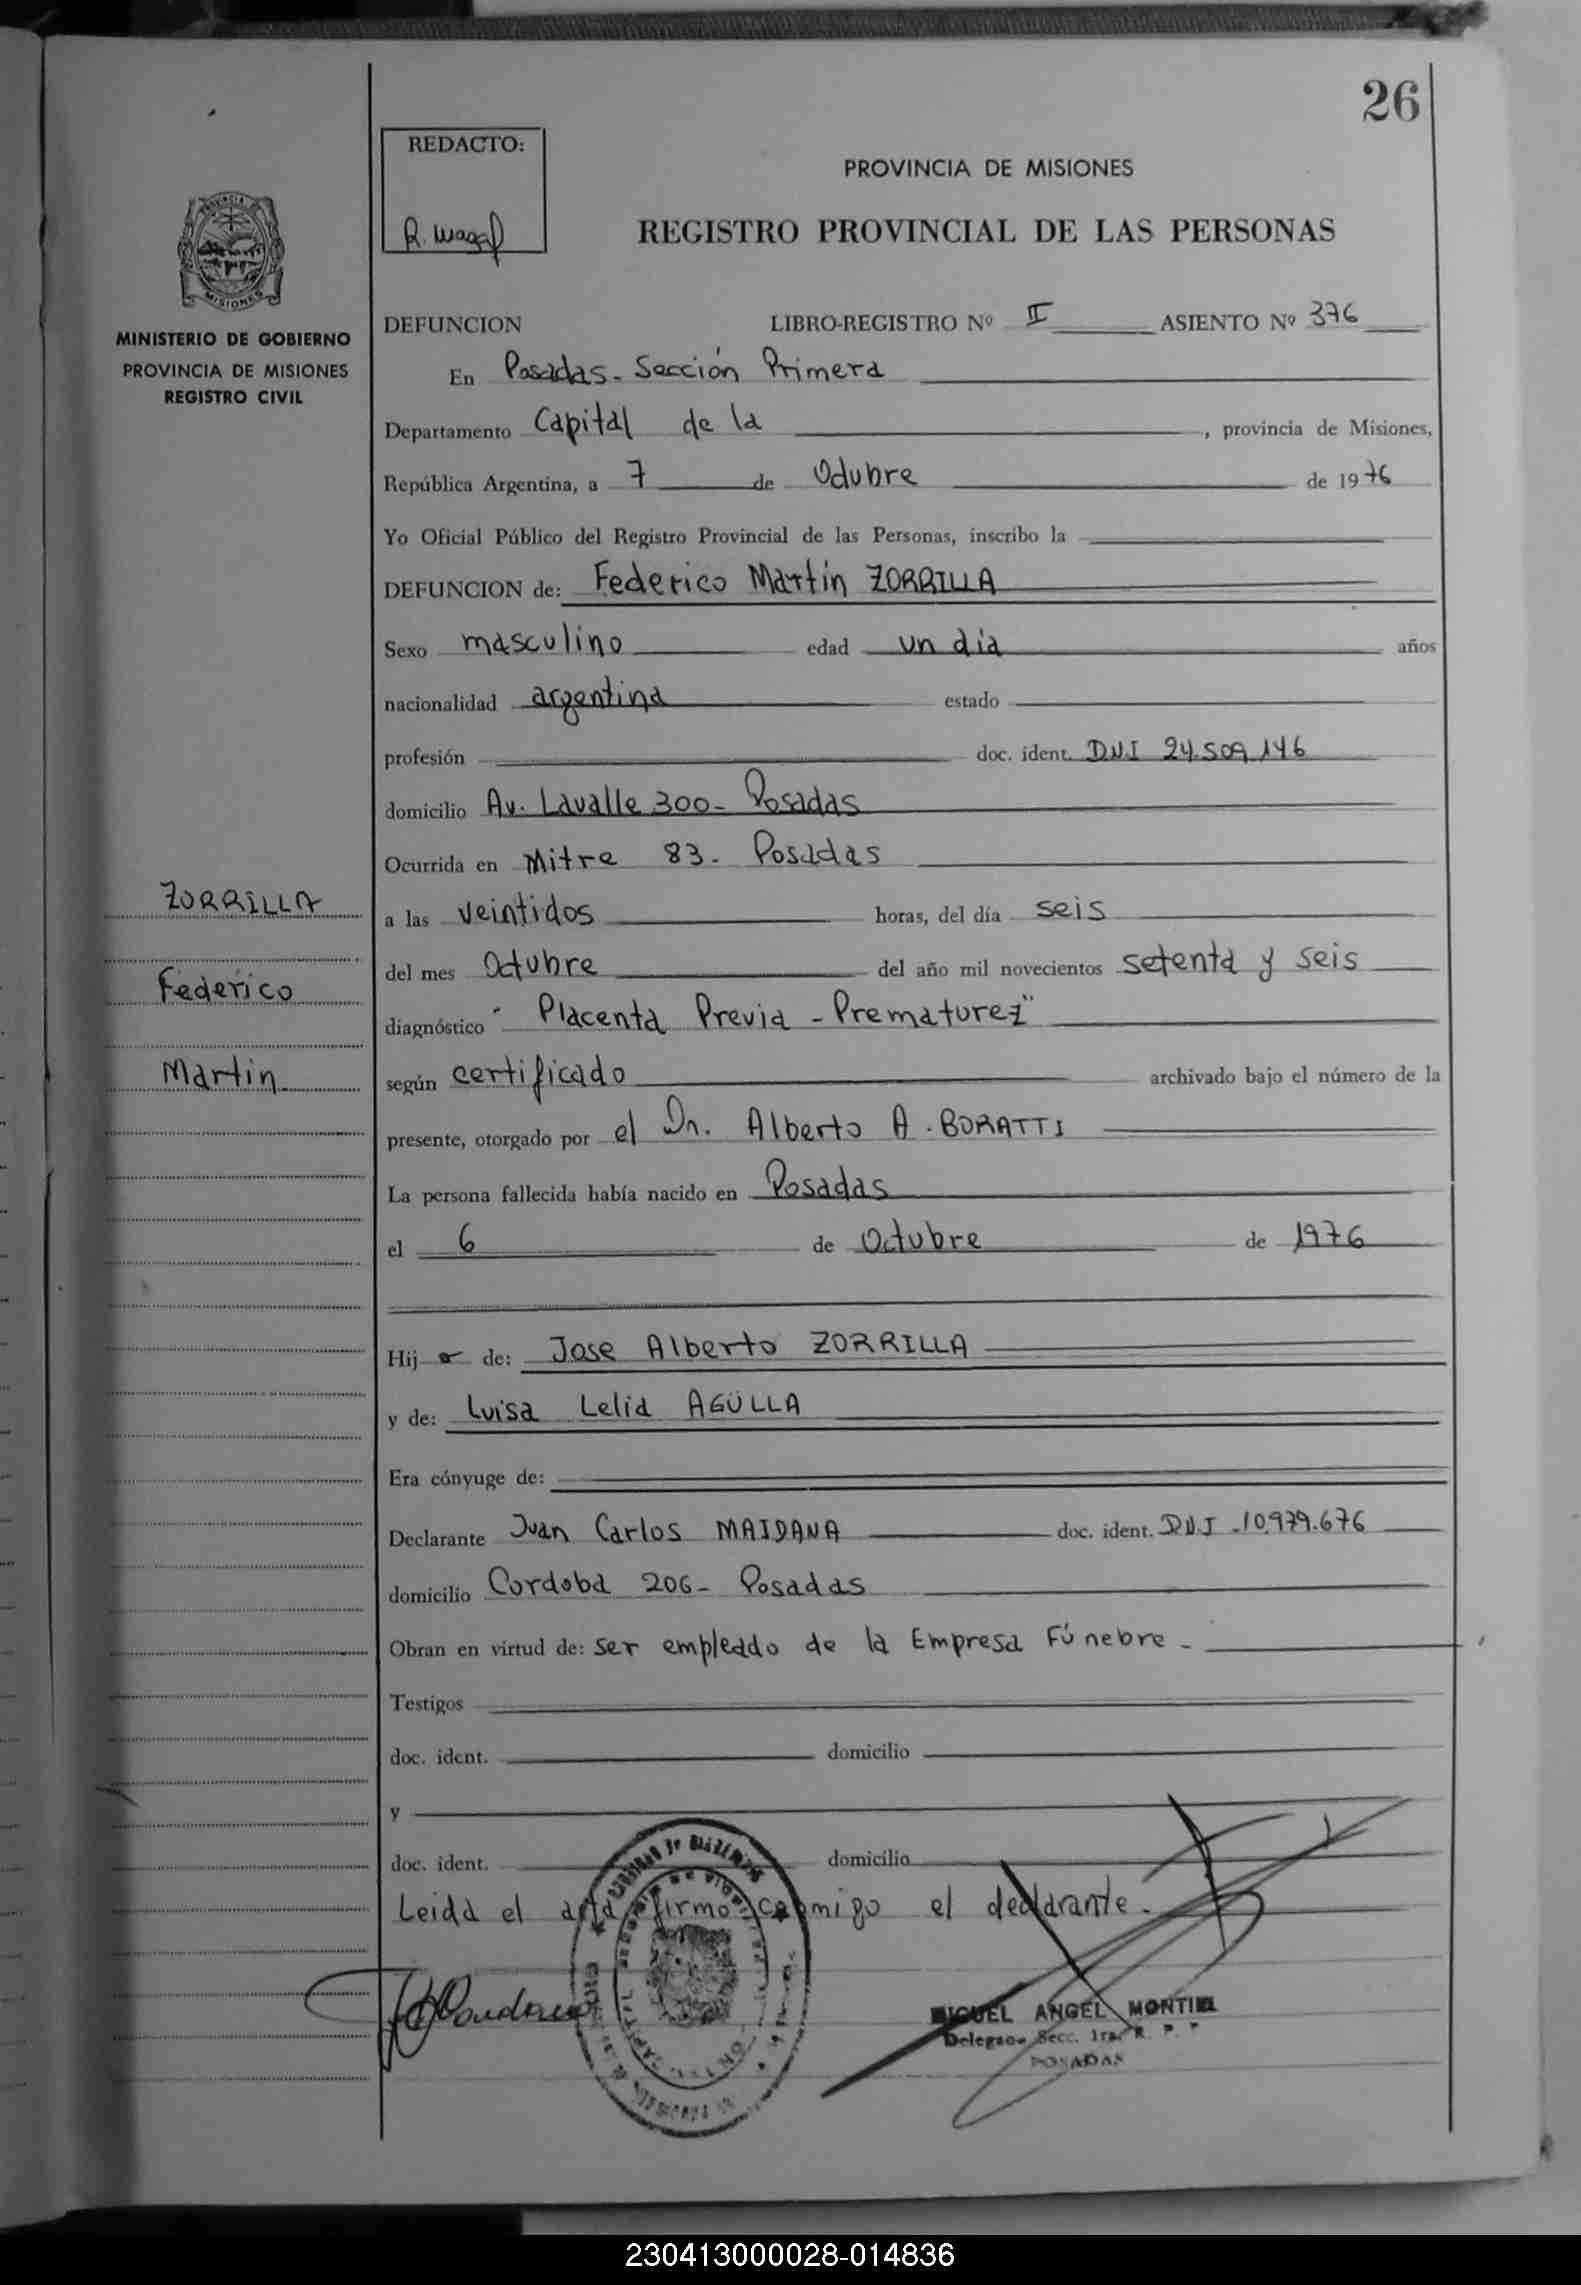 26
REDACTO:
PROVINCIA DE MISIONES
REGISTRO PROVINCIAL DE LAS PERSONAS
MINISTERIO DE GOBIERNO
PROVINCIA DE MISIONES
REGISTRO CIVIL
DEFUNCION LIBRO-REGISTRO Nº II ASIENTO Nº 376
En Posadas - Sección Primera
Departamento Capital de la , provincia de Misiones,
República Argentina, a 7 de Octubre de 1976
Yo Oficial Público del Registro Provincial de las Personas, inscribo la
DEFUNCION de: Federico Martín ZORRILLA
Sexo masculino edad un día años
nacionalidad argentina estado
profesión doc. ident. D.N.I 24.509.146
domicilio Av. Lavalle 300- Posadas
Ocurrida en Mitre 83 - Posadas
ZORRILLA
a las veintidos horas, del día seis
del mes Octubre del año mil novecientos setenta y seis
Federico
diagnóstico "Placenta Previa - Prematurez"
Martin
según certificado archivado bajo el número de la
presente, otorgado por el Dr. Alberto A. BORATTI
La persona fallecida había nacido en Posadas
el 6 de Octubre de 1976
Hij o de: Jose Alberto ZORRILLA
y de: Luisa Lelia AGÜLLA
Era cónyuge de:
Declarante Juan Carlos MAIDANA doc. ident. D.N.I - 10.979.676
domicilio Cordoba 206- Posadas
Obran en virtud de: ser empleado de la Empresa Fúnebre -
Testigos
doc. ident. domicilio
y
doc. ident. domicilio
Leida el acta firmo conmigo el declarante.
MIGUEL ANGEL MONTIEL
Delegado Secc. 1ra. R. P. P
POSADAS
230413000028-014836